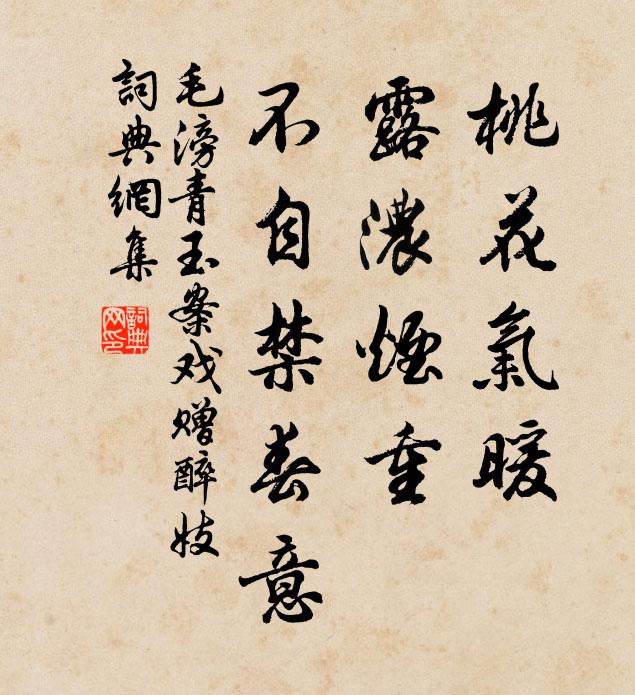 桃花氣暖
露濃煙重
不自禁春意
毛滂青玉案戏赠醉妓
詞典網集
詞典网印